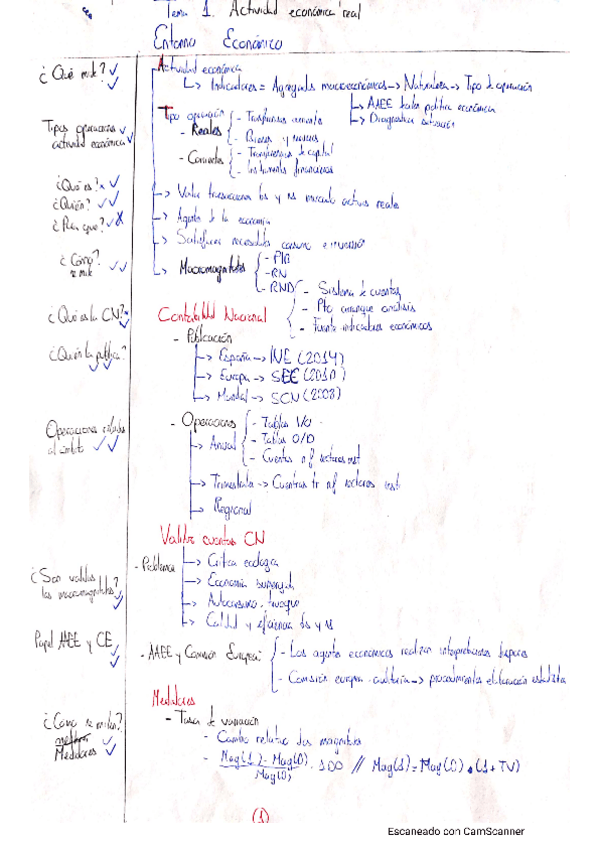 Tema 1. Actividad económica real
Entorno Económico
¿Qué mide?
Actividad económica
Indicadores = Agregados macroeconómicos → Naturaleza → Tipo de operación
AAEE política económica
Diagnostica situación
Tipos operaciones
actividad económica
Tipo operación
- Reales
- Transferencias corrientes
- Bienes y servicios
- Transferencias de capital
- Instrumentos financieros
¿Qué es?
¿Quién?
¿Para qué?
→ Valor transacciones bs y ss actives reales
→ Agentes de la economía
→ Satisfacer necesidades consumo e inversión
¿Cómo?
se mide
→ Macromagnitudes
- PIB
- RN
- RND
¿Qué es la CN?
Contabilidad Nacional
- Sistema de cuentas
- Pto arranque análisis
- Fuente indicadores económicos
¿Quién la publica?
- Publicación
→ España → INE (2014)
→ Europa → SEE (2010)
→ Mundial → SCN (2008)
Operaciones
al ámbito
- Operaciones
→ Anual
- Tablas I/O
- Tablas O/D
- Cuentas n f sectores inst
→ Trimestrales → Cuentas tr n f sectores inst
→ Regional
Validez cuentas CN
¿Son validas
las macromagnitudes?
- Problemas
→ Crítica ecológica
→ Economía sumergida
→ Autoconsumo, trueque
→ Calidad y eficiencia bs y ss
Papel AAEE y CE
- AAEE y Comisión Europea:
- Los agentes económicos realizan interpretaciones
- Comisión europea auditoría → procedimientos elaboración estadística
Medidores
¿Cómo se miden?
Medidores
- Tasa de variación
- Cambio relativo dos magnitudes
- Mag(1) - Mag(0) / Mag(0) · 100 // Mag(1) = Mag(0) • (1 + TV)
(1)
Escaneado con CamScanner